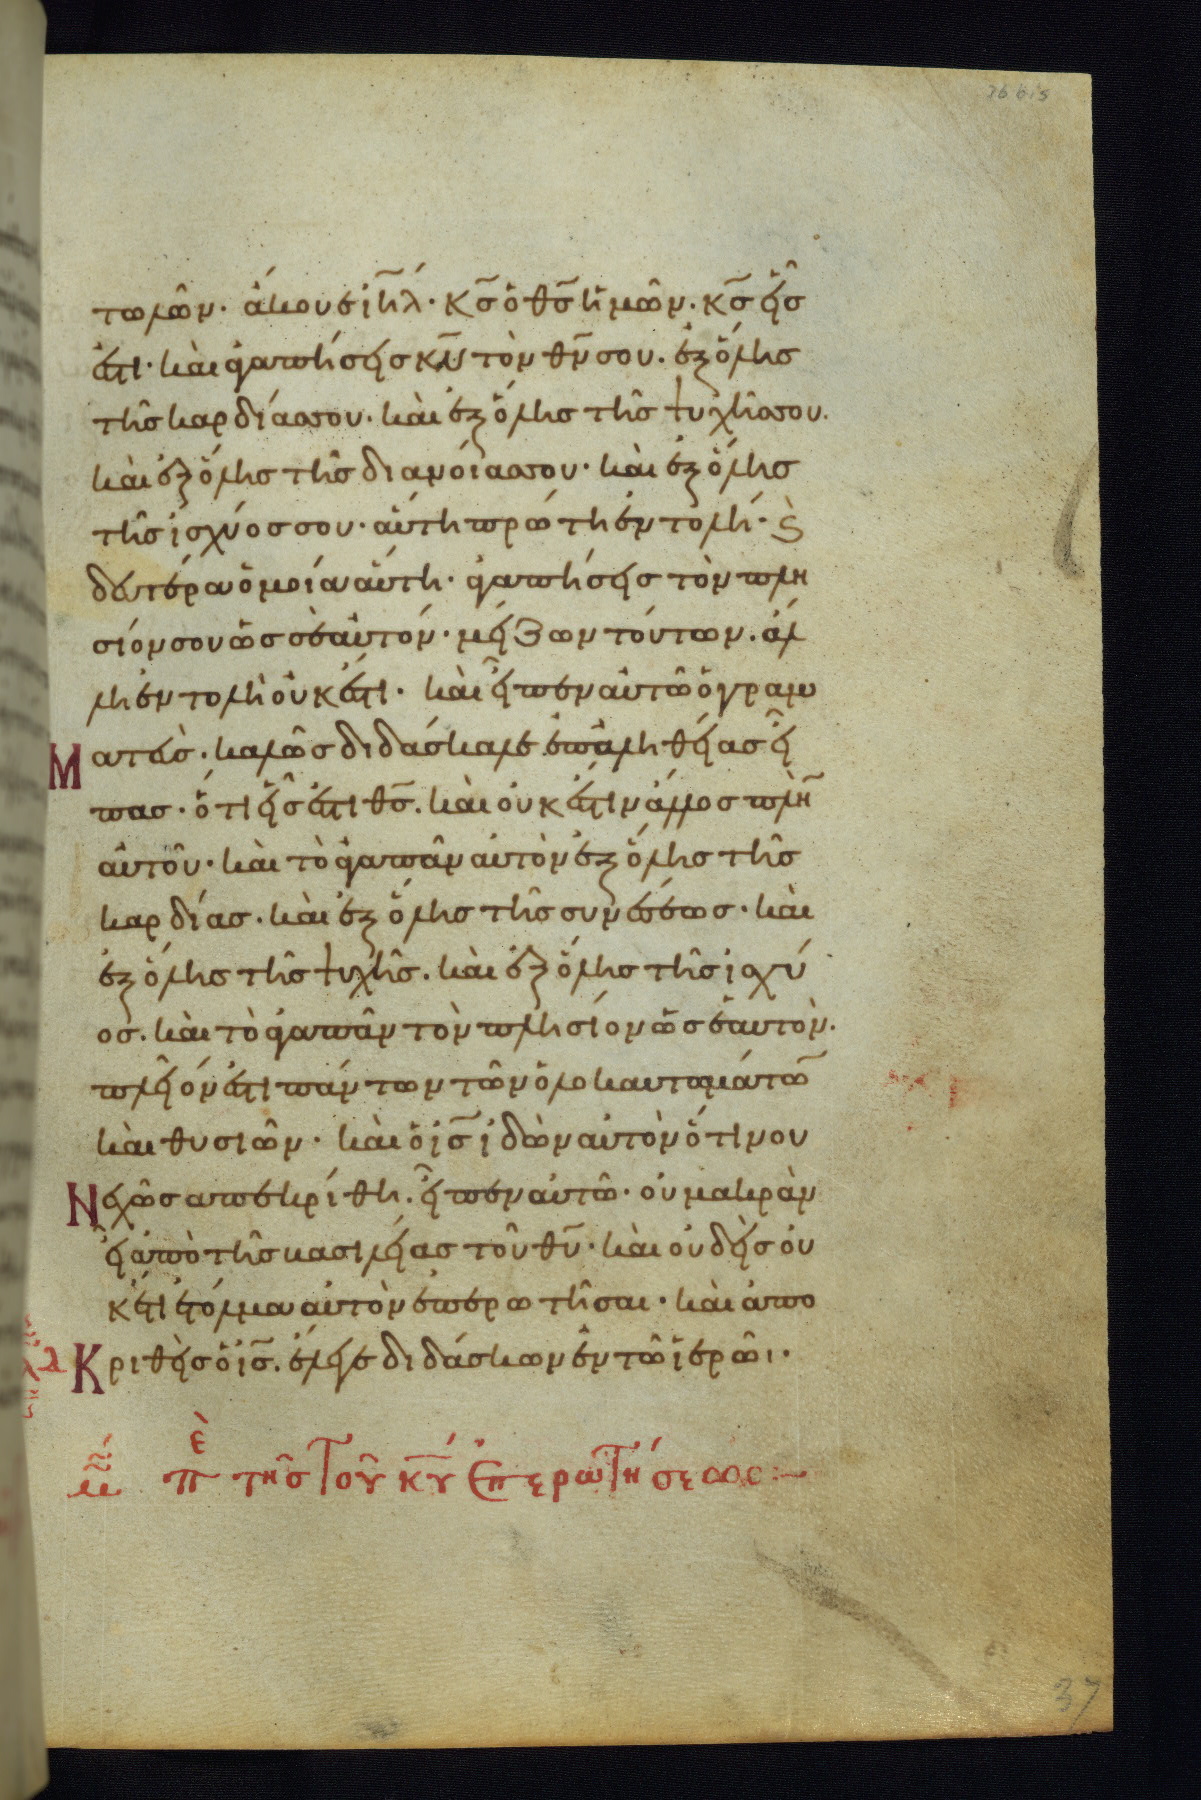 36 bis
τολῶν· ἄκουε ἰῆλ· κς ὁ θς ἡμῶν· κς εἷς
ἐστι· καὶ ἀγαπήσεις κν τὸν θν σου· ἐξ ὅλης
τῆς καρδίας σου· καὶ ἐξ ὅλης τῆς ψυχῆς σου·
καὶ ἐξ ὅλης τῆς διανοίας σου· καὶ ἐξ ὅλης
τῆς ἰσχύος σου· αὕτη πρώτη ἐντολή· ϗ
δευτέρα ὁμοία αὕτη· ἀγαπήσεις τὸν πλη
σίον σου ὡς σεαυτόν· μείζων τούτων· ἄλ
λη ἐντολὴ οὐκ ἔστι· καὶ εἶπεν αὐτῶ ὁ γραμ
Ματεύς· καλῶς διδάσκαλε ἐπ' ἀληθείας εἶ
πας· ὅτι εἷς ἐστι θς· καὶ οὐκ ἔστιν ἄλλος πλὴν
αὐτοῦ· καὶ τὸ ἀγαπᾶν αὐτὸν ἐξ ὅλης τῆς
καρδίας· καὶ ἐξ ὅλης τῆς συνέσεως· καὶ
ἐξ ὅλης τῆς ψυχῆς· καὶ ἐξ ὅλης τῆς ἰσχύ
ος· καὶ τὸ ἀγαπᾶν τὸν πλησίον ὡς ἑαυτὸν·
πλεῖόν ἐστι πάντων τῶν ὁλοκαυτωμάτων
καὶ θυσιῶν· καὶ ὁ ις ἰδὼν αὐτὸν ὅτι νου
Νεχῶς ἀπεκρίθη· εἶπεν αὐτῶ· οὐ μακρὰν
εἶ ἀπὸ τῆς βασιλείας τοῦ θυ· καὶ οὐδεὶς οὐ
κέτι ἐτόλμα αὐτὸν ἐπερωτῆσαι· καὶ ἀπο
Κριθεὶς ὁ ις· ἔλεγε διδάσκων ἐν τῶ ἱερῶι·
πε τῆς τοῦ κυ ἐπερωτήσεως:
37